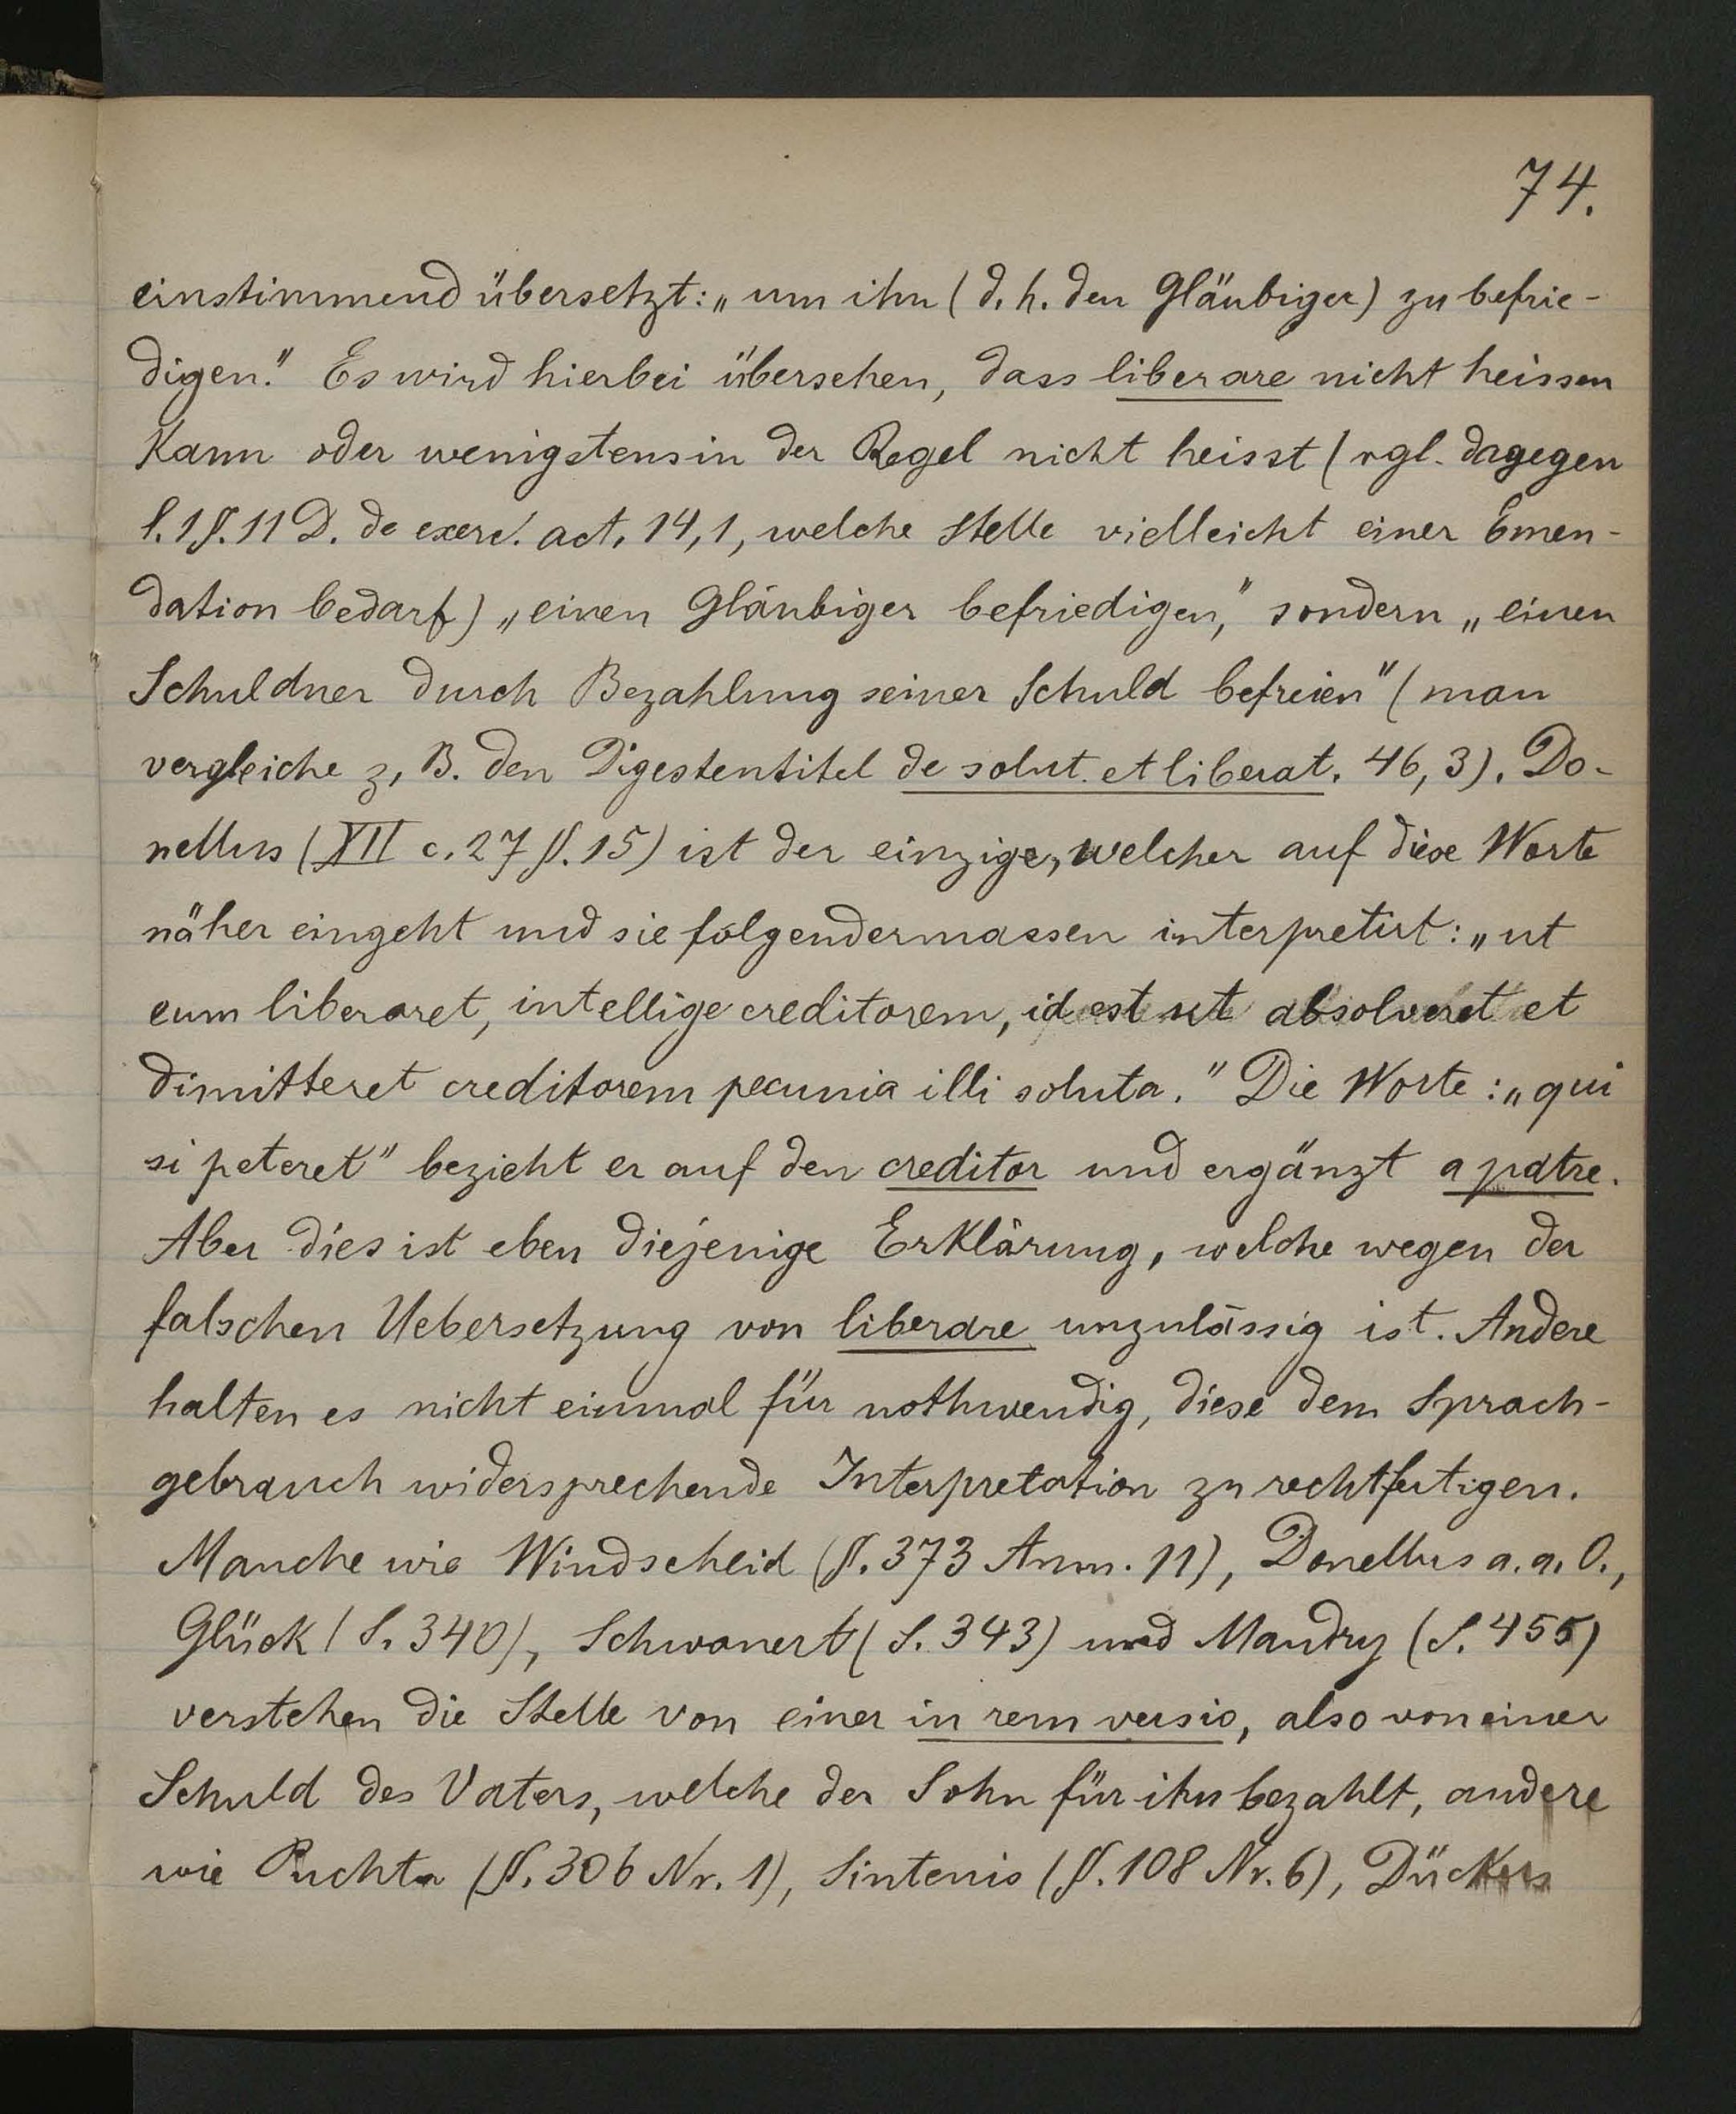 74.
einstimmend übersetzt: „um ihn (d. h. den Gläubiger) zu befrie-
digen." Es wird hierbei übersehen, dass liberare nicht heissen
kann oder wenigstens in der Regel nicht heisst (vgl. dagegen
l. 1 §. 11 D. de exerc. act. 14, 1, welche Stelle vielleicht einer Emen-
dation bedarf) „einen Gläubiger befriedigen," sondern „einen
Schuldner durch Bezahlung seiner Schuld befreien" (man
vergleiche z. B. den Digestentitel de solut. et liberat. 46, 3). Do-
nellus (XII c. 27 §. 15) ist der einzige, welcher auf diese Worte
näher eingeht und sie folgendermassen interpretirt: „ut
eum liberaret, intellige creditorem, id est ut absolveret et
dimitteret creditorem pecunia illi soluta." Die Worte: „qui
si peteret" bezieht er auf den creditor und ergänzt a patre.
Aber dies ist eben diejenige Erklärung, welche wegen der
falschen Uebersetzung von liberare unzulässig ist. Andere
halten es nicht einmal für nothwendig, diese dem Sprach-
gebrauch widersprechende Interpretation zu rechtfertigen.
Manche wie Windscheid (§. 373 Anm. 11), Donellus a. a. O.,
Glück (S. 340), Schwanert (S. 343) und Mandry (S. 455)
verstehen die Stelle von einer in rem versio, also von einer
Schuld des Vaters, welche der Sohn für ihn bezahlt, andere
wie Puchta (§. 306 Nr. 1), Sintenis (§. 108 Nr. 6), Dückers